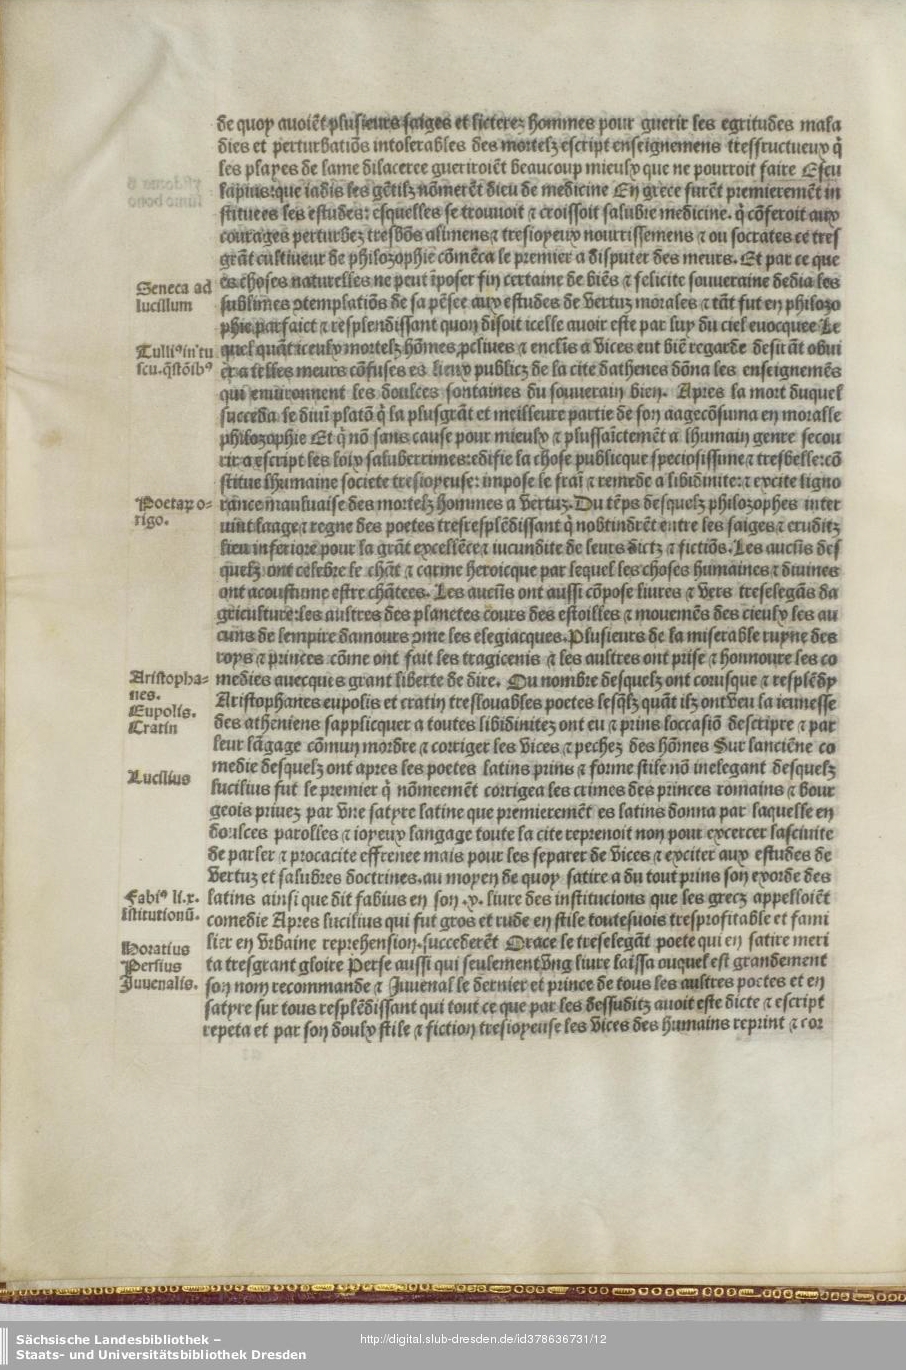 de quoy auoiēt plusieurs saiges et lieterez hommes pour guerir les egritudes mala
dies et perturbatiōs intolerables des mortelz escript enseignemens tresfructueux q̄
les playes de lame dilaceree gueriroiēt beaucoup mieulx que ne pourroit faire Escu
lapius: que iadis les gētilz nōmerēt dieu de medicine En grece furēt premieremēt in
stituees les estudes: esquelles se trouuoit ⁊ croissoit salubre medicine. q̄ cōferoit aux
courages perturbez tresbōs alimens ⁊ tresioyeux nourrissemens ⁊ ou socrates ce tres
grāt cultiueur de philozophie cōmēca le premier a disputer des meurs. Et par ce que
Seneca ad
lucillum
es choses naturelles ne peut īposer fin certaine de biēs ⁊ felicite souueraine dedia les
sublimes ↄtemplatiōs de sa pēsee aux estudes de vertuz morales ⁊ tāt fut en philozo
phie parfaict ⁊ resplendissant quon disoit icelle auoir este par luy du ciel euocquee Le
Tulliꝰ in tu
scu. q̄stōibꝰ
quel quāt iceulx mortelz hōmes ꝓcliues ⁊ enclīs a vices eut biē regarde desirāt obui
er a telles meurs cōfuses es lieux publicz de la cite dathenes dōna les enseignemēs
qui enuironnent les doulces fontaines du souuerain bien. Apres la mort duquel
succeda le diuī platō q̄ la plusgrāt et meilleure partie de son aage cōsuma en moralle
philozophie Et q̄ nō sans cause pour mieulx ⁊ plussaīctemēt a lhumain genre secou
rir a escript les loix saluberrimes: edifie la chose publicque speciosissime ⁊ tresbelle: cō
stitue lhumaine societe tresioyeuse: impose le fraī ⁊ remede a libidinite: ⁊ excite ligno
Poetaꝝ o-
rigo.
rance mauluaise des mortelz hommes a vertuz. Du tēps desquelz philozophes inter
uint laage ⁊ regne des poetes tresresplēdissant q̄ nobtindrēt entre les saiges ⁊ eruditz
lieu inferiore pour la grāt excellēce ⁊ iucundite de leurs dictz ⁊ fictiōs. Les aucūs des
quelz ont celebre le chāt ⁊ carme heroicque par lequel les choses humaines ⁊ diuines
ont acoustume estre chātees. Les aucūs ont aussi cōpose liures ⁊ vers treselegās da
griculture: les aultres des planetes cours des estoilles ⁊ mouemēs des cieulx les au
cuns de lempire damours ↄme les elegiacques. Plusieurs de la miserable ruyne des
roys ⁊ princes cōme ont fait les tragicenis ⁊ les aultres ont prise ⁊ honnoure les co
Aristopha-
nes.
Eupolis.
Cratin
medies auecques grant liberte de dire. Du nombre desquelz ont corusque ⁊ resplēdy
Aristophanes eupolis et cratin treslouables poetes lesq̄lz quāt ilz ont veu la ieunesse
des atheniens sapplicquer a toutes libidinitez ont eu ⁊ prins loccasiō descripre ⁊ par
leur lāgage cōmun mordre ⁊ corriger les vices ⁊ pechez des hōmes Sur lanciēne co
Lucilius
medie desquelz ont apres les poetes latins prins ⁊ forme stile nō inelegant desquelz
lucilius fut le premier q̄ nōmeemēt corrigea les crimes des princes romains ⁊ bour
geois priuez par vne satyre latine que premieremēt es latins donna par laquelle en
doulces parolles ⁊ ioyeux langage toute la cite reprenoit non pour excercer lasciuite
de parler ⁊ procacite effrenee mais pour les separer de vices ⁊ exciter aux estudes de
vertuz et salubres doctrines. au moyen de quoy satire a du tout prins son exorde des
Fabiꝰ li.x.
īstitutionū.
latins ainsi que dit fabius en son .x. liure des institucions que les grecz appelloiēt
comedie Apres lucilius qui fut gros et rude en stile toutesuois tresprofitable et fami
Horatius
Persius
Juuenalis.
lier en vrbaine reprehension. succederēt Orace le treselegāt poete qui en satire meri
ta tresgrant gloire Perse aussi qui seulement vng liure laissa ouquel est grandement
son nom recommande ⁊ Juuenal le dernier et prince de tous les aultres poetes et en
satyre sur tous resplēdissant qui tout ce que par les dessusditz auoit este dicte ⁊ escript
repeta et par son doulx stile ⁊ fiction tresioyeuse les vices des humains reprint ⁊ cor
Sächsische Landesbibliothek –
Staats- und Universitätsbibliothek Dresden
http://digital.slub-dresden.de/id378636731/12